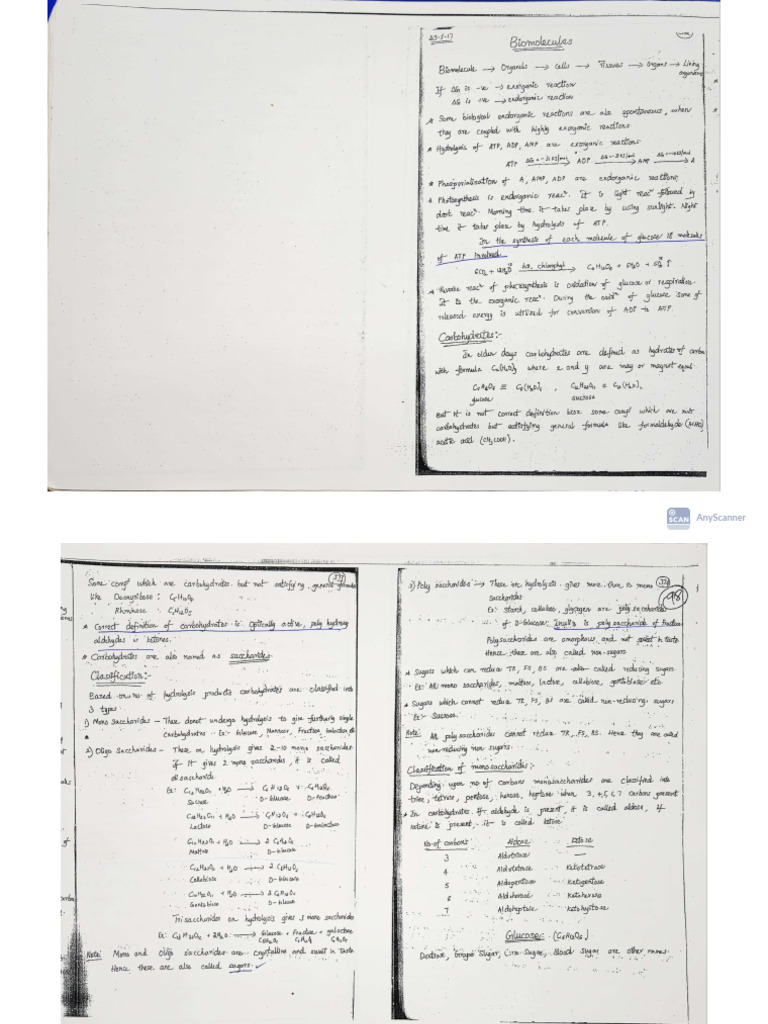 23-5-17
Biomolecules
Biomolecule → Organels → Cells → Tissues → Organs → Living
organisms
If ΔG is -ve → exergonic reaction
ΔG is +ve → endergonic reaction
* Some biological endergonic reactions are also spontaneous, when
they are coupled with highly exergonic reactions
* Hydrolysis of ATP, ADP, AMP are exergonic reactions
ATP → ADP → AMP → A
* Phosphorialisation of A, AMP, ADP are endergonic reactions
* Photosynthesis is endergonic reacⁿ. It is light reacⁿ followed by
dark reacⁿ. Morning time it takes place by using sunlight. Night
time it takes place by hydrolysis of ATP.
In the synthesis of each molecule of glucose 18 molecules
of ATP involved.
* Reverse reacⁿ of photosynthesis is oxidation of glucose or respiration.
It is the exergonic reacⁿ. During the oxidⁿ of glucose some of
released energy is utilized for conversion of ADP to ATP.
Carbohydrates:-
In older days carbohydrates are defined as hydrates of carbon
with formula Cx(H2O)y where x and y are may or maynot equal
glucose
sucrose
But it is not correct definition some which are not
carbohydrates but satisfying general formula like formaldehyde (HCHO)
acetic acid (CH3COOH).
SCAN AnyScanner
Some which are carbohydrates but not satisfying general formula
like Deoxyribose : C5H10O4
Rhamnose : C6H12O5
* Correct definition of carbohydrates is Optically active, poly hydroxy
aldehydes or ketones.
* Carbohydrates are also named as saccharides
Classification:-
Based on no of hydrolysis products carbohydrates are classified into
3 types
1) Mono Saccharides - These donot undergo hydrolysis to give furtherly simple
carbohydrates. Ex:- Glucose, Mannose, Fructose,
2) Oligo Saccharides - These on hydrolysis gives 2-10 mono saccharides
If it gives 2 mono saccharides, it is called
disaccharide
Ex: C12H22O11 + H2O → C6H12O6 + C6H12O6
Sucrose D-Glucose D-fructose
C12H22O11 + H2O → C6H12O6 + C6H12O6
Lactose D-Glucose D-Galactose
C12H22O11 + H2O → 2 C6H12O6
Maltose D-Glucose
C12H22O11 + H2O → 2 C6H12O6
Cellobiose D-Glucose
C12H22O11 + H2O → 2 C6H12O6
Gentiobiose D-Glucose
Trisaccharides on hydrolysis gives 3 mono saccharides
Ex: → Glucose + Fructose + galactose
C6H12O6 C6H12O6 C6H12O6
Note: Mono and Oligo saccharides are crystalline and sweet in taste
Hence these are also called sugars.
3) Poly saccharides → These on hydrolysis gives more than 10 mono
saccharides
Ex: Starch, cellulose, glycogen are poly saccharides
of D-Glucose. Inulin is polysaccharide of fructose
Polysaccharides are amorphous and not sweet in taste
Hence these are also called non-sugars
* Sugars which can reduce TR, FS, BS are called reducing sugars
Ex: All mono saccharides, maltose, lactose, cellobiose, gentiobiose etc
* Sugars which cannot reduce TR, FS, BS are called non-reducing sugars
Ex:- Sucrose
Note: All poly saccharides cannot reduce TR, FS, BS. Hence they are called
non-reducing non sugars.
Classification of mono saccharides:-
Depending upon no of carbons monosaccharides are classified into
triose, tetrose, pentose, hexose, heptose when 3,4,5,6,7 carbons present
* In carbohydrates if aldehyde is present, it is called aldose, if
ketone is present, it is called ketose.
No of carbons Aldose Ketose
3 Aldotriose —
4 Aldotetrose Ketotetrose
5 Aldopentose Ketopentose
6 Aldohexose Ketohexose
7 Aldoheptose Ketoheptose
Glucose:- (C6H12O6)
Dextrose, Grape Sugar, Corn-Sugar, Blood sugar are other names